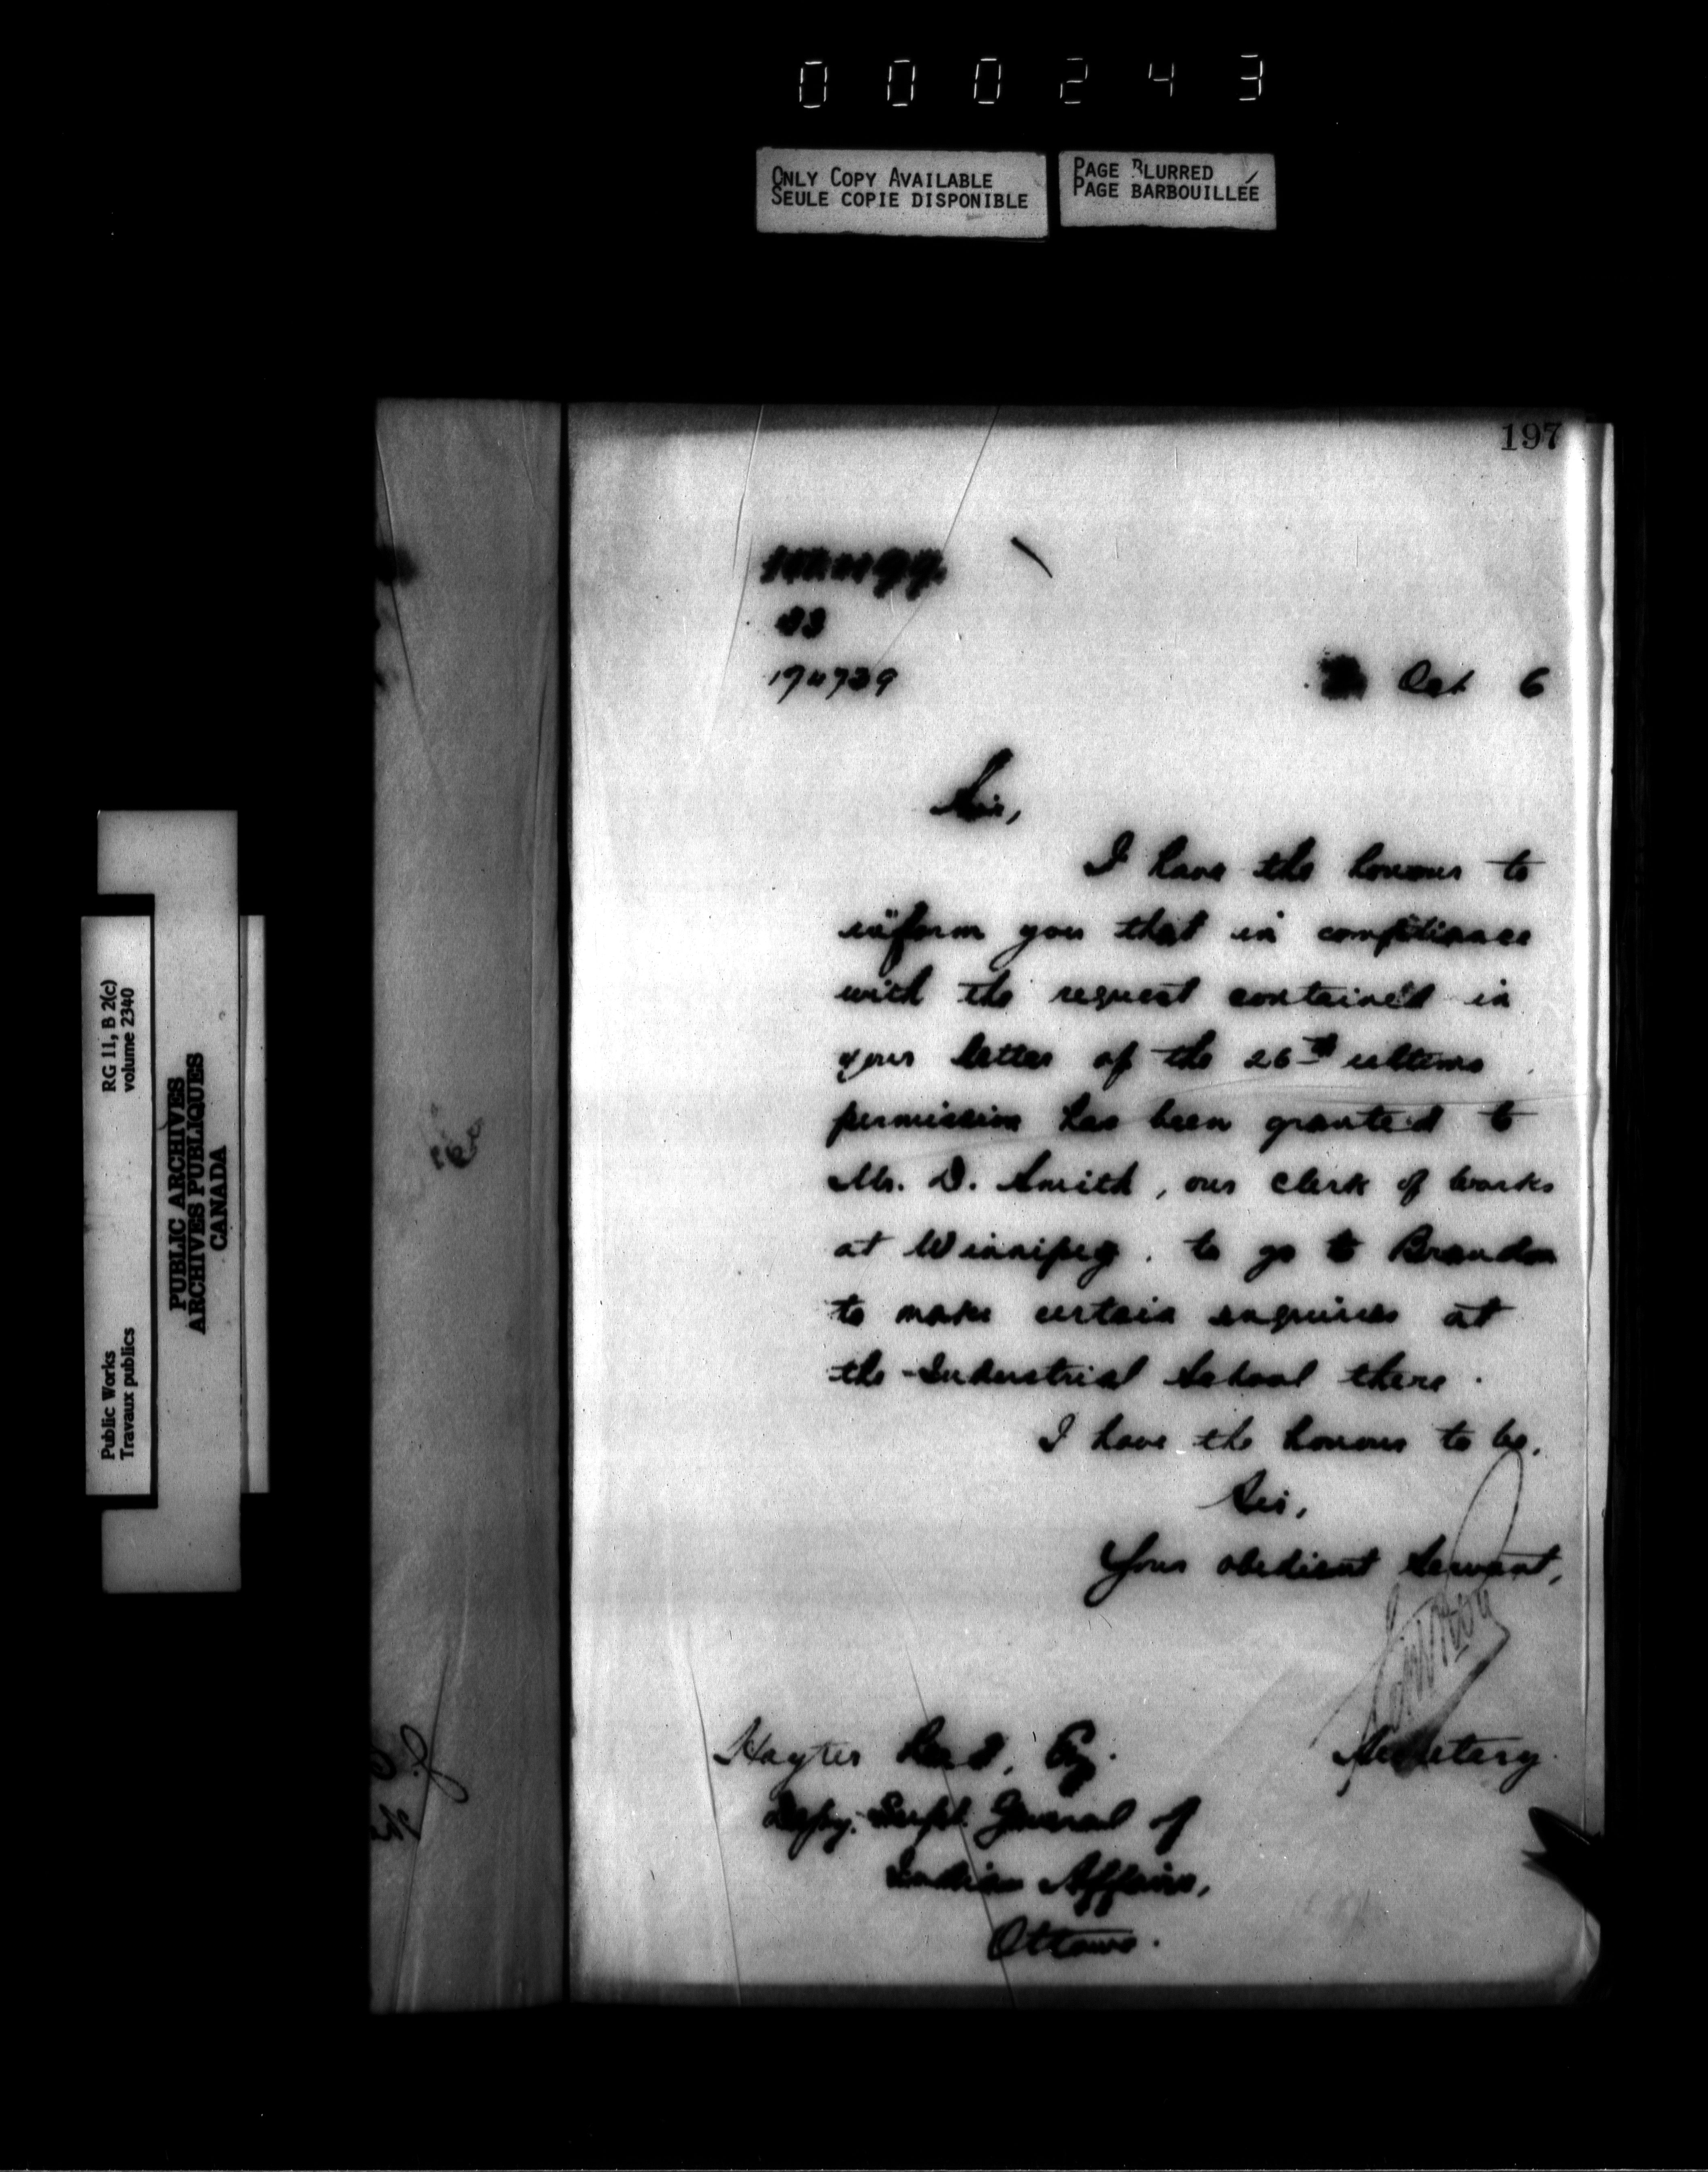 000243
ONLY COPY AVAILABLE
SEULE COPIE DISPONIBLE
PAGE BLURRED
PAGE BARBOUILLÉE
RG 11, B 2(c)
volume 2340
Public Works
Travaux publics
PUBLIC ARCHIVES
ARCHIVES PUBLIQUES
CANADA
197
33
Oct 6
Sir,
I have the honour to
inform you that in compliance
with the request contained in
your letter of the 26th ultimo
permission has been granted to
Mr. D. Smith, our Clerk of Works
at Winnipeg, to go to Brandon
to make certain inquiries at
the Industrial School there.
I have the honour to be,
Sir,
Your obedient Servant,
Secretary.
Hayter Reed, Esq.
Depy. Supt. General of
Indian Affairs,
Ottawa.